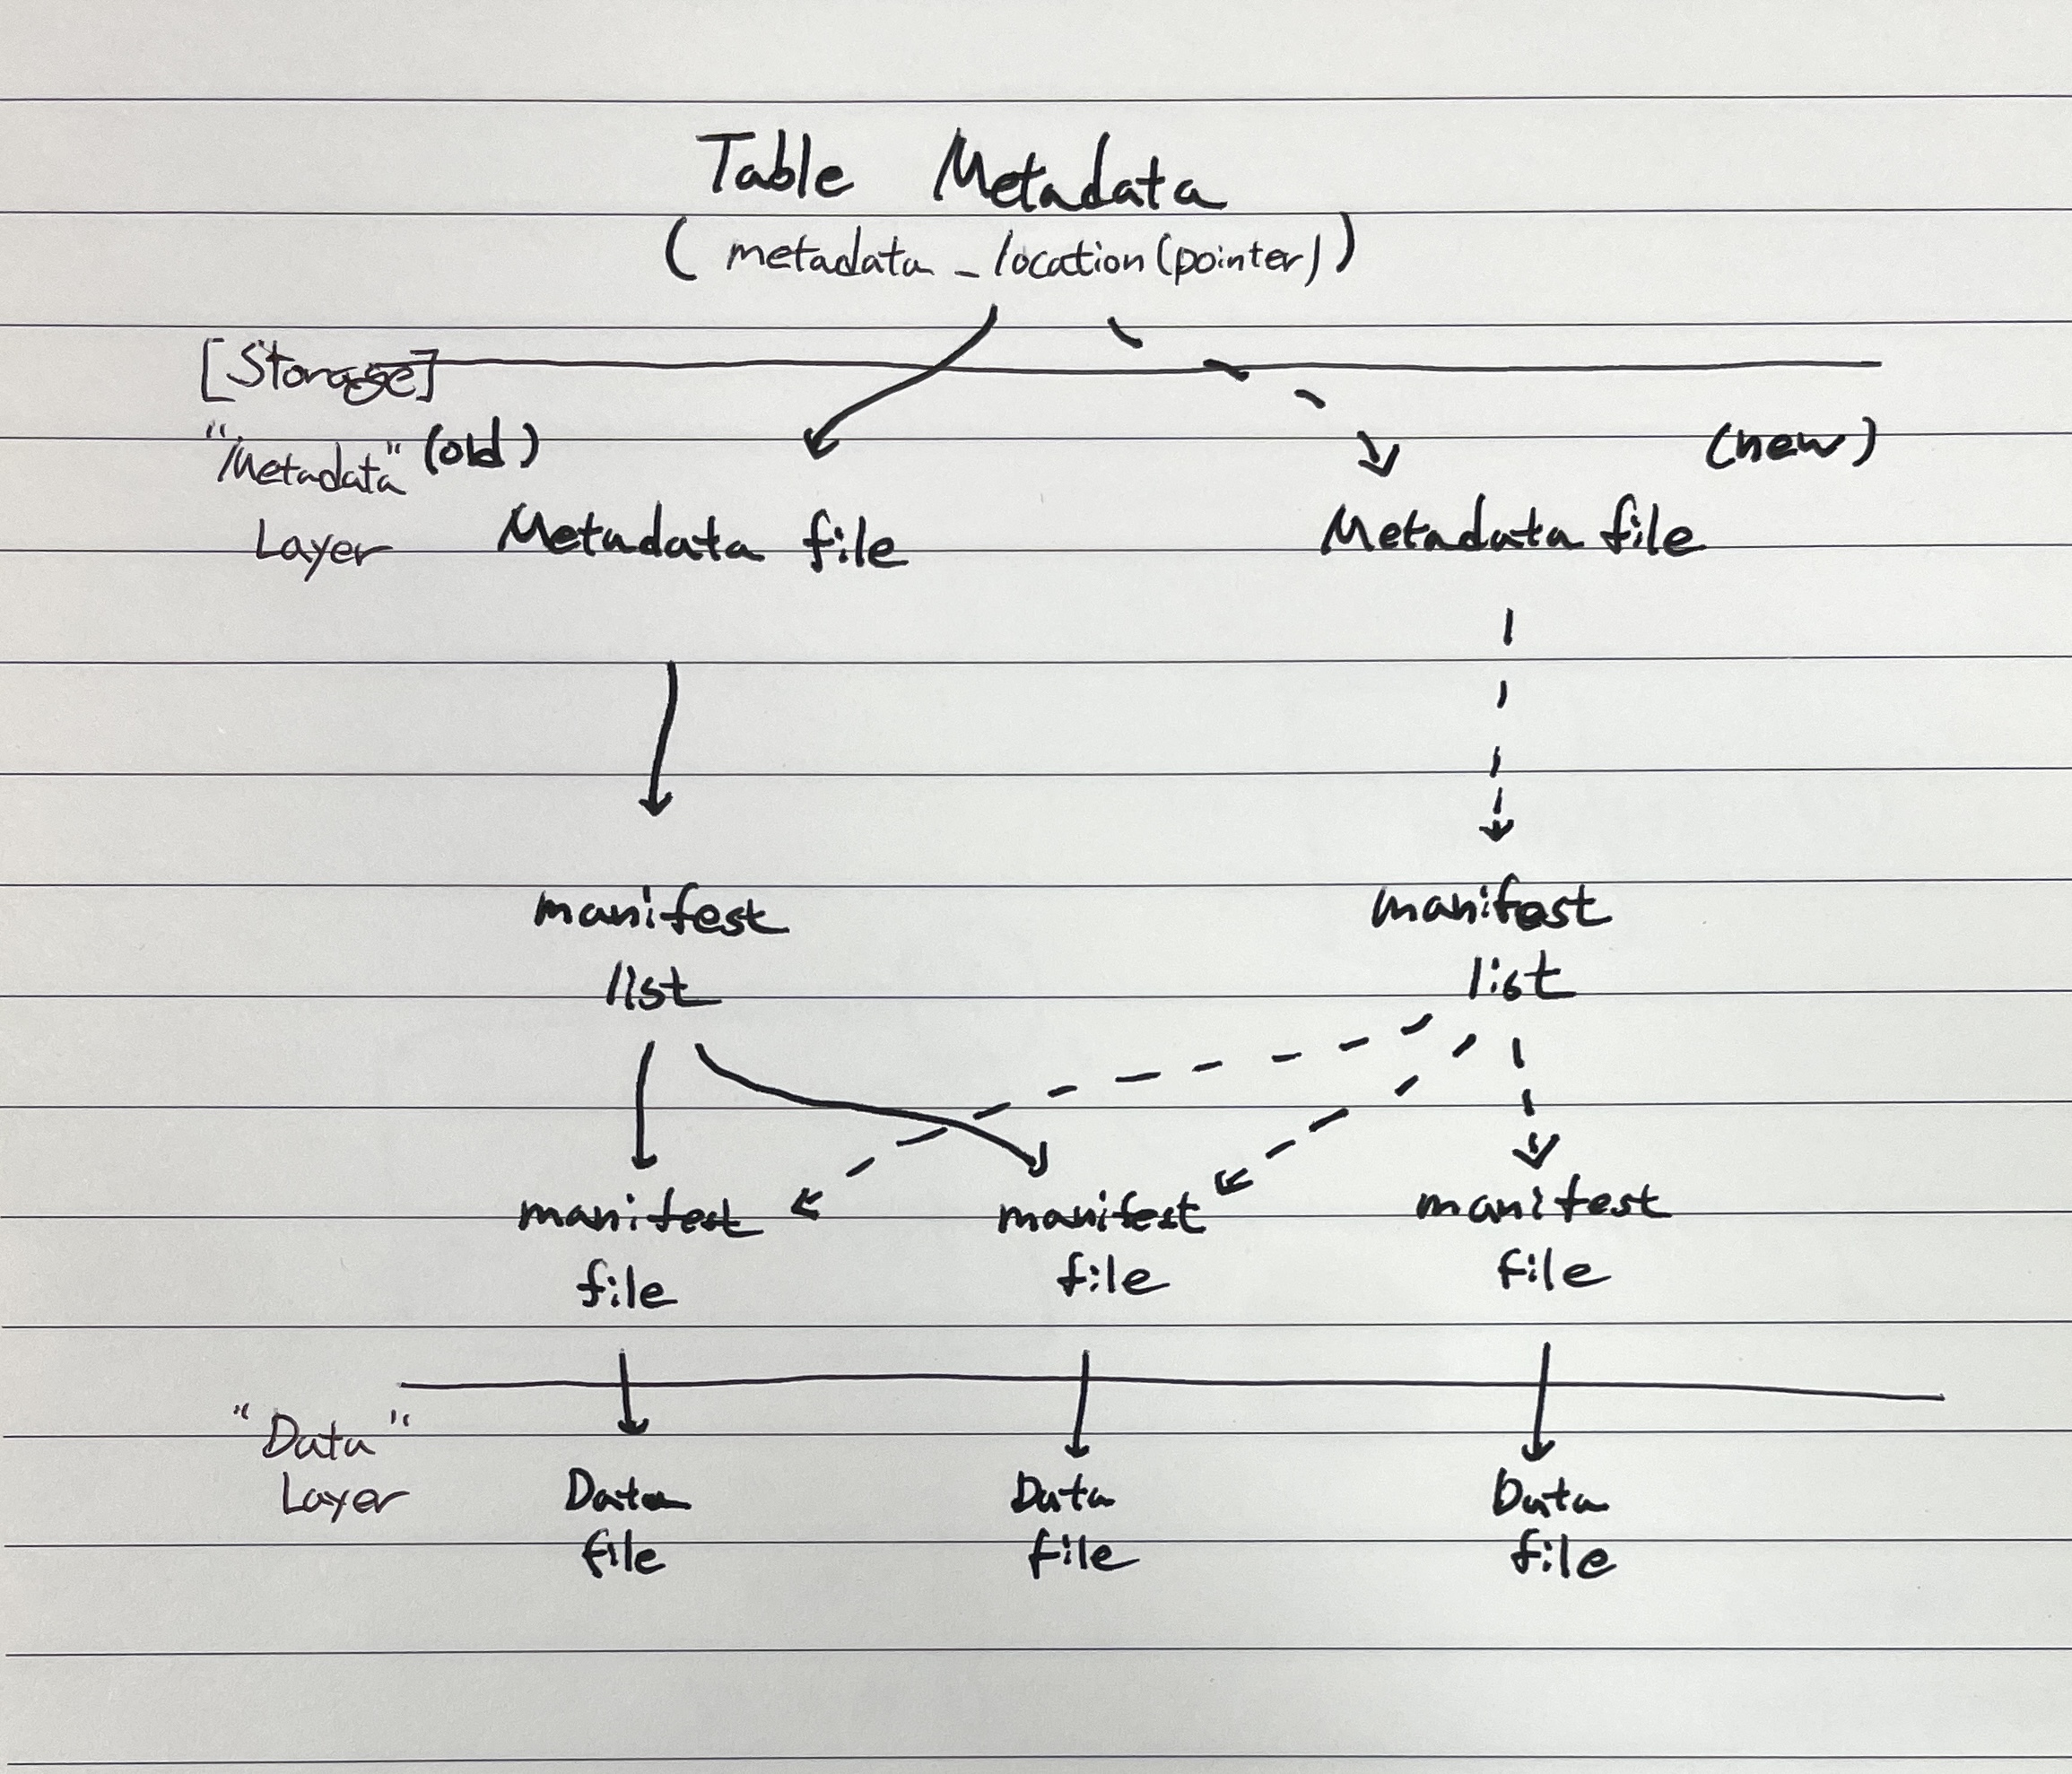 Table Metadata
(metadata_location(pointer))
[Storage]
"Metadata" (old)
(new)
Layer
Metadata file
Metadata file
manifest
list
manifest
list
manifest
file
manifest
file
manifest
file
"Data"
Layer
Data
file
Data
file
Data
file